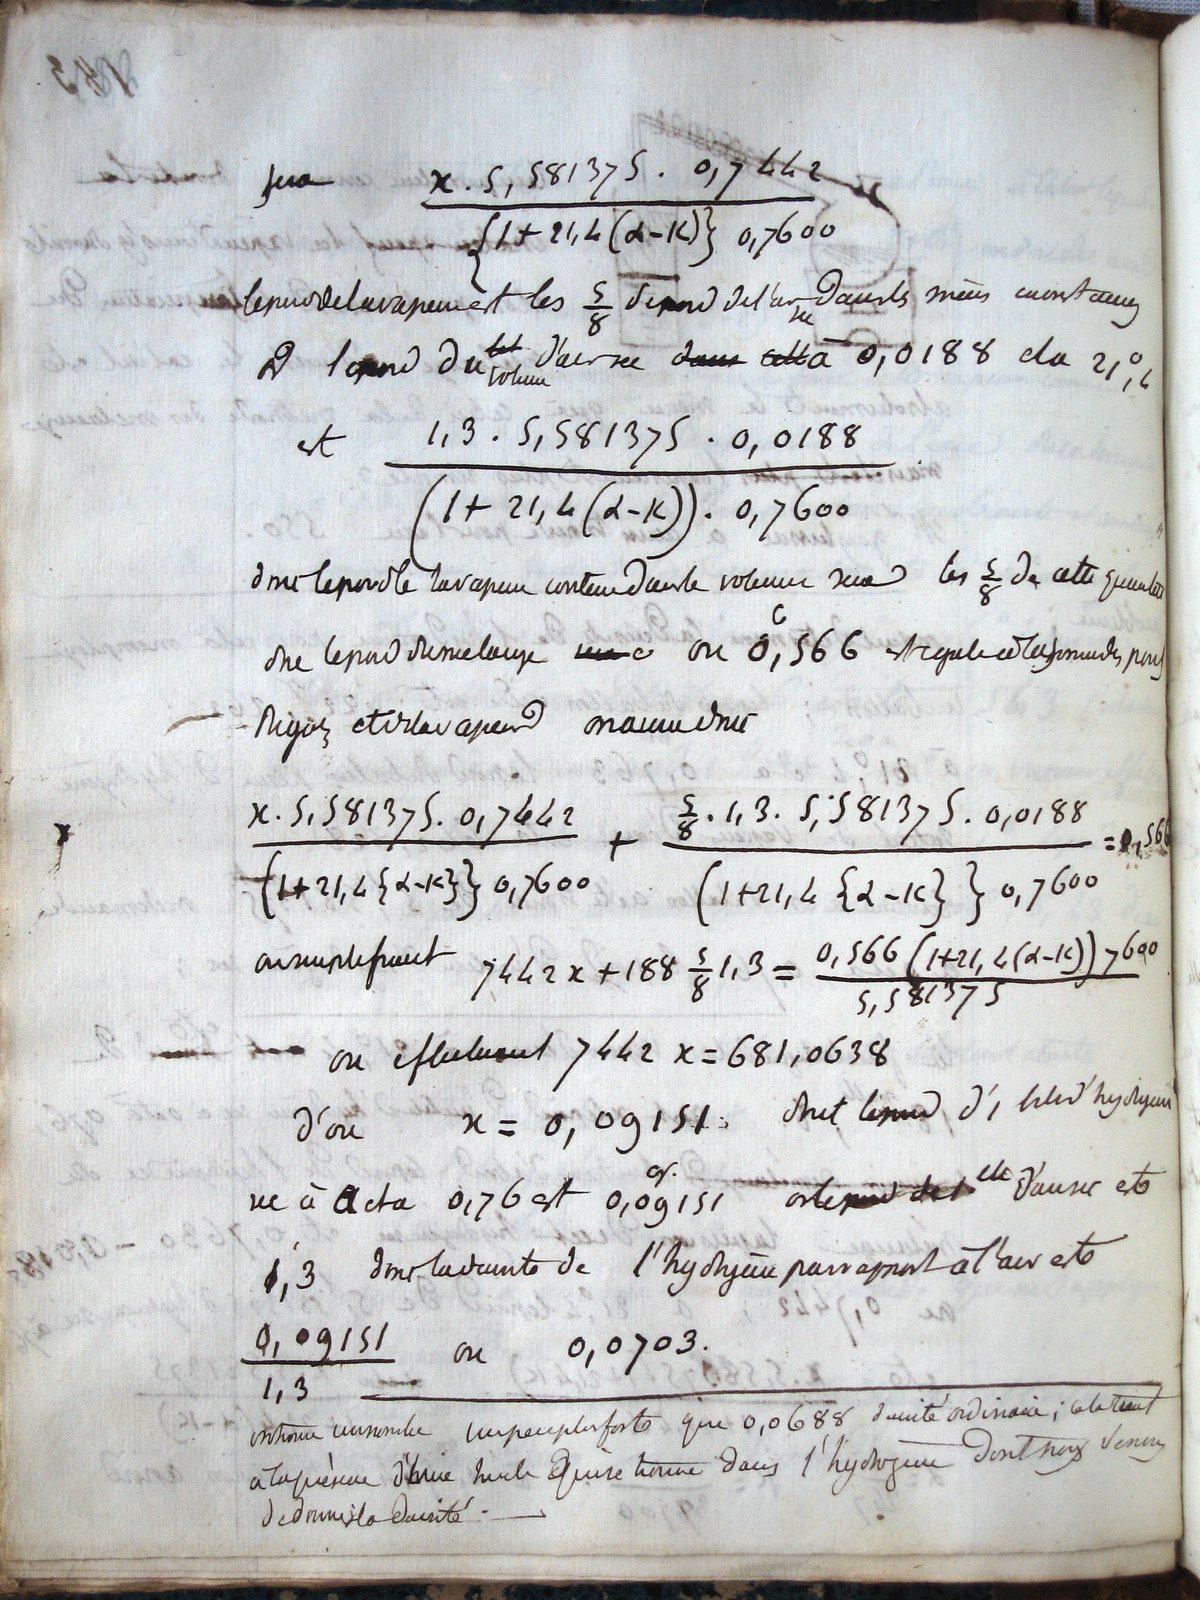 sera x. 5,581375. 0,7442
{1+21,4(α-K)} 0,7600
le poids de la vapeur est les 5/8 du poids de l'air sec dans les mêmes circonstances
le poids du volume d'air sec à 0,0188 et à 21°,4
est 1,3. 5,581375. 0,0188
(1+21,4(α-K)). 0,7600
donc le poids de la vapeur contenu dans le volume sera les 5/8 de cette quantité
donc le poids du mélange ou 0,566 est égal à la somme des poids
du gaz et de la vapeur on aura donc
x. 5,581375. 0,7442 + 5/8. 1,3. 5,581375. 0,0188 = 0,566
{1+21,4{α-K}} 0,7600 (1+21,4{α-K}} 0,7600
ou simplifiant 7442x + 188 5/8 1,3 = 0,566(1+21,4(α-K))7600
5,581375
ou effectuant 7442 x = 681,0638
d'où x = 0,09151. donc le poids d'1 litre d'hydrogène
sec à 0 et à 0,76 est 0,09151 gr. or le poids de 1 lit. d'air sec est
1,3 donc la densité de l'hydrogène par rapport à l'air est
0,09151 ou 0,0703.
1,3
on trouve un nombre un peu plus forte que 0,0688 densité ordinaire; cela tient
à la présence d'une huile qui se trouve dans l'hydrogène dont nous venons
de donner la densité.